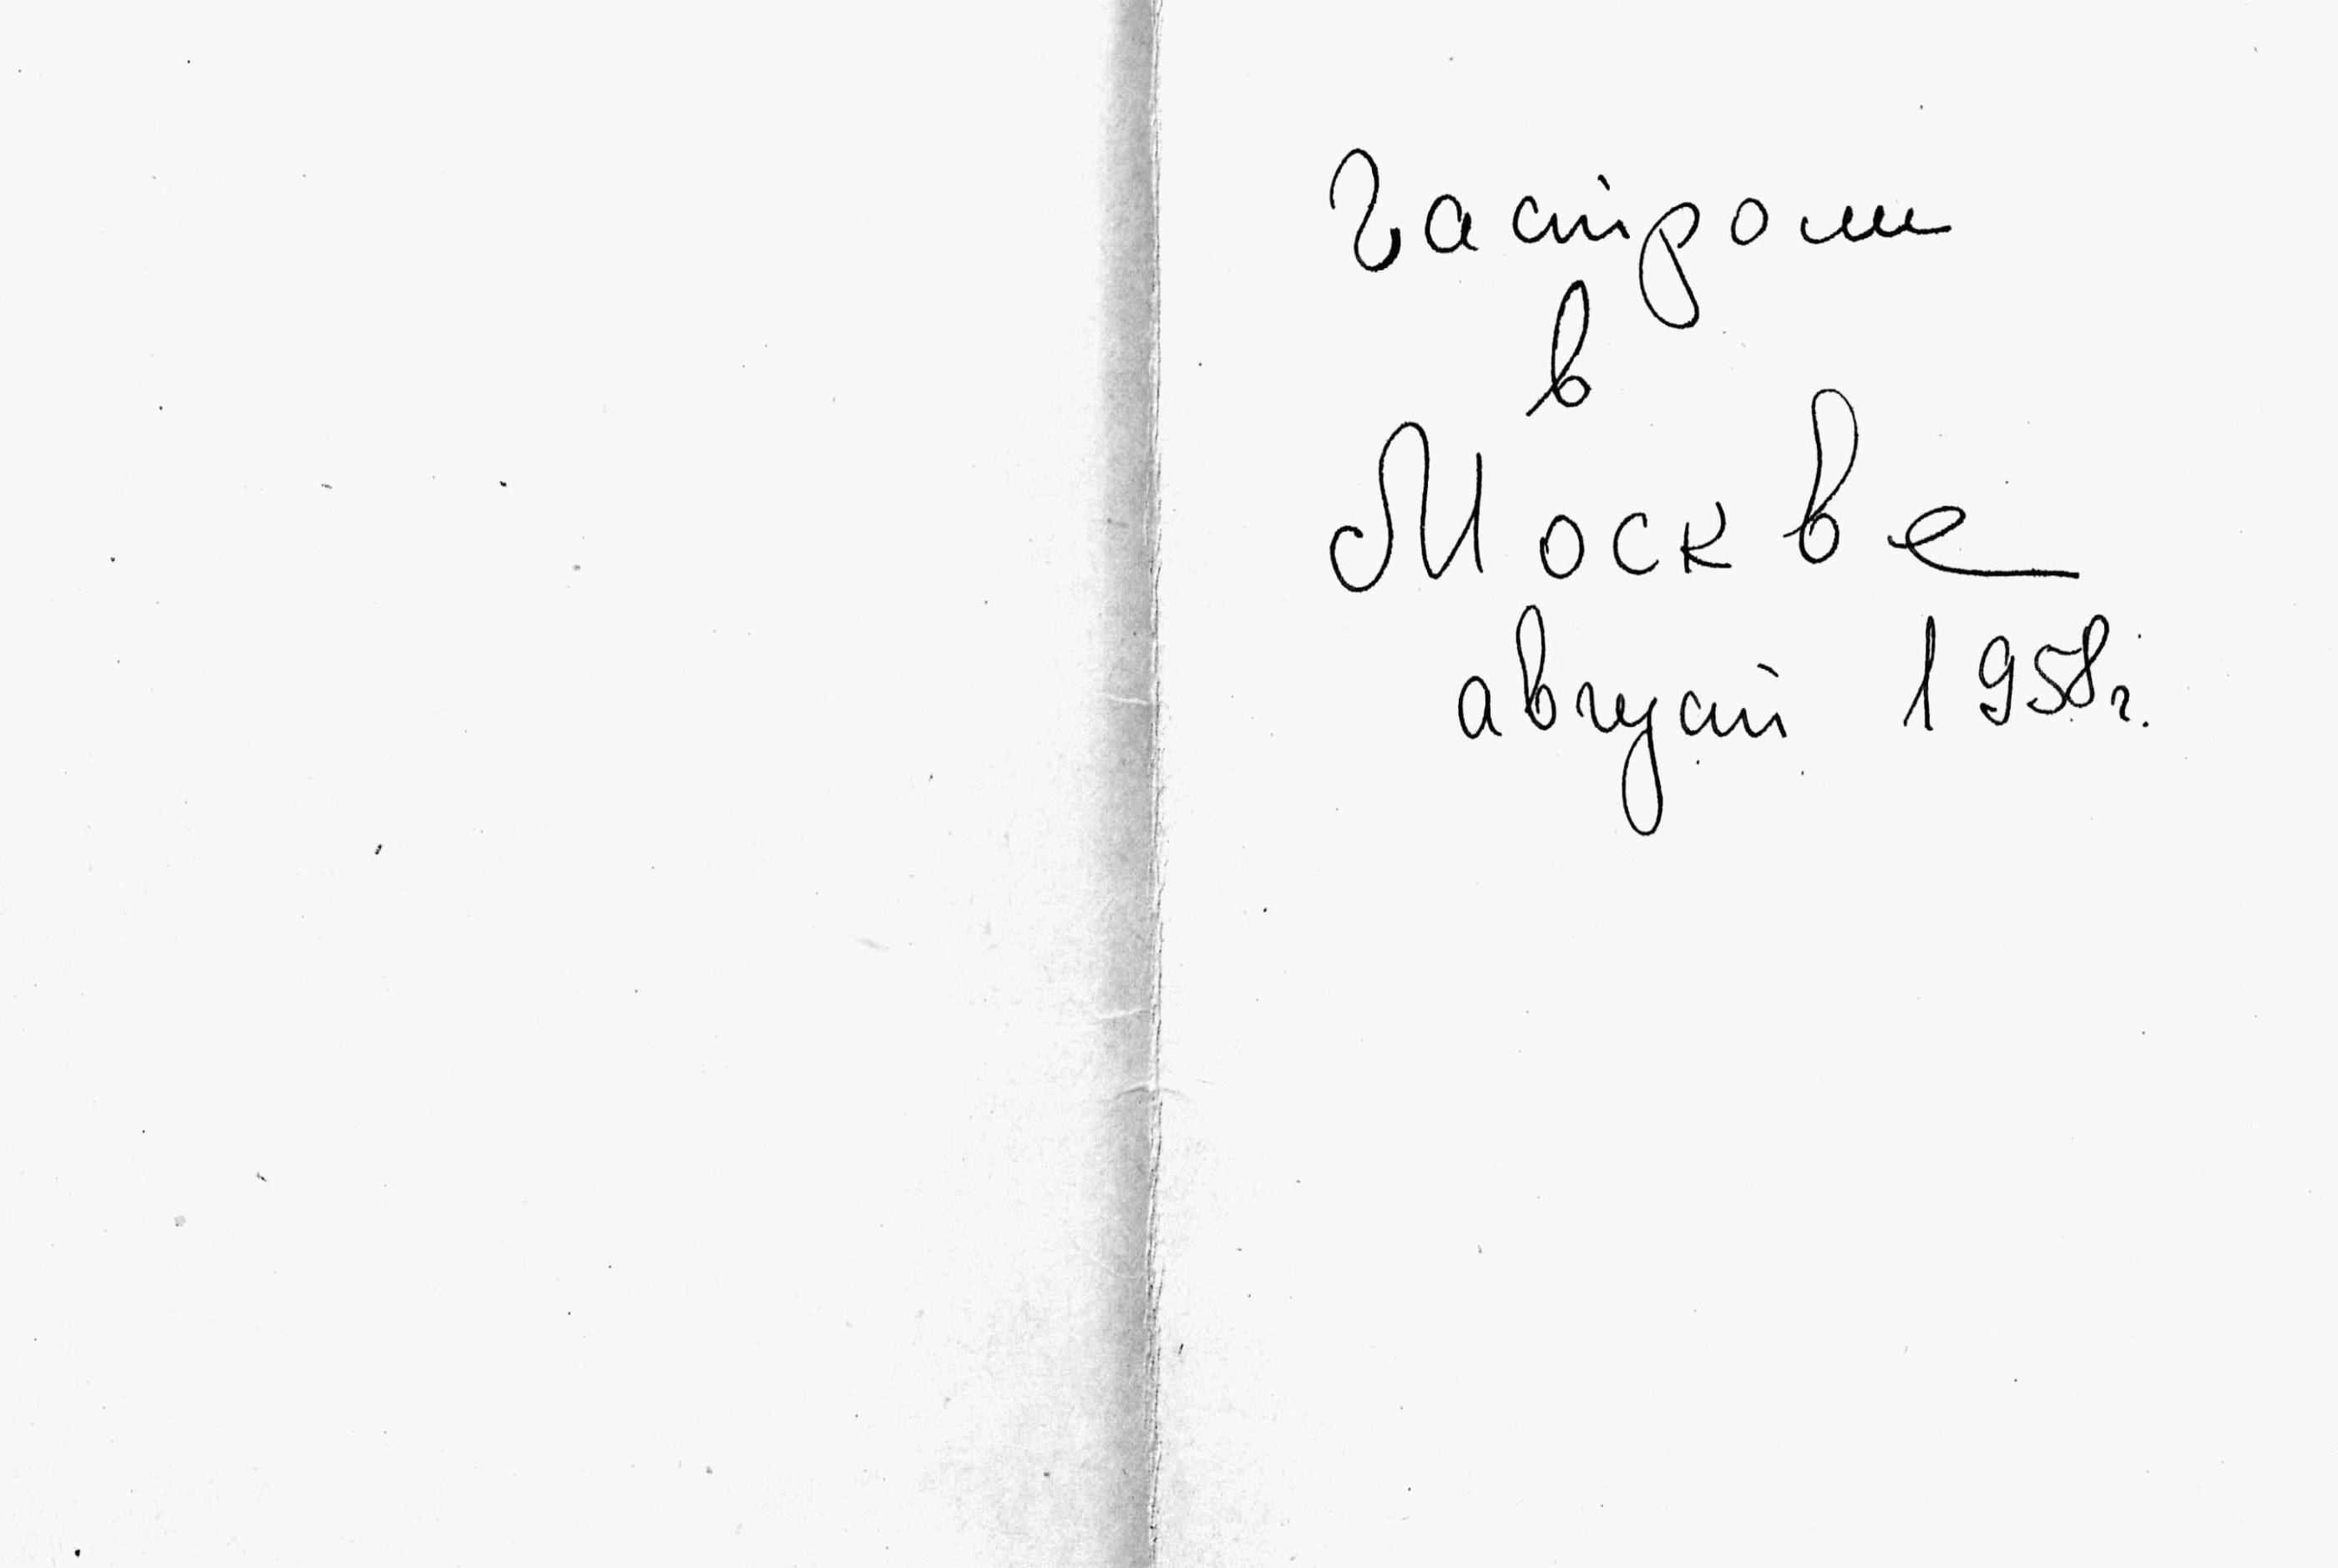 Гастроли
в
Москве
август 1958г.